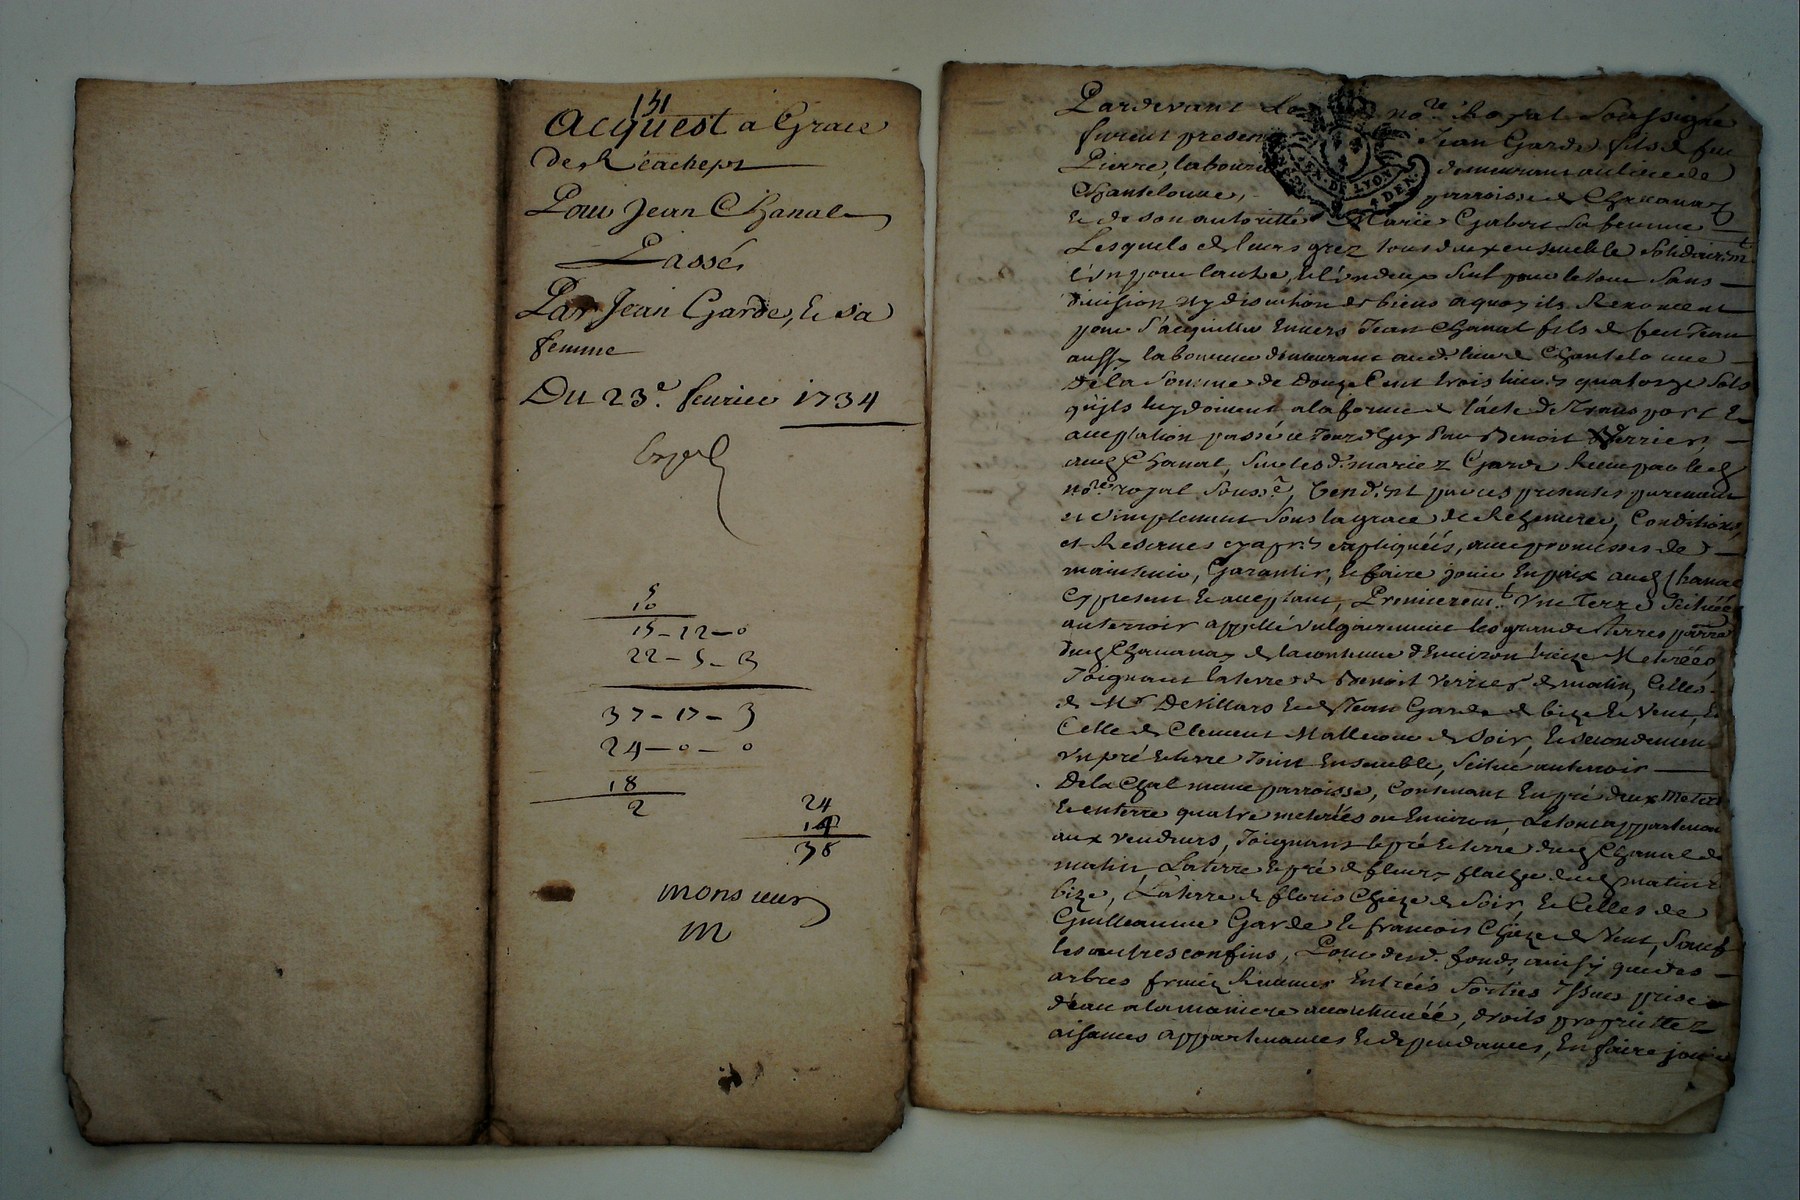 131
Acquest a Grace
de Réachept
Pour Jean Chanal
Passés
Par Jean Garde, et sa
femme
Du 23.e feurier 1734
5
10
15-12-0
22-5-3
37-17-3
24-0-0
18
2
24
14
38
monsieur
m
Pardevant Le no.re Royal Soussigné
furent presen Jean Garde fils de feu
Pierre, laboure demeurant au lieu de
Chanteloune, parroisse de Chauanay
et de son autoritté Marie Gabert sa femme
Lesquels de leurs grez tous deux ensemble solidairem.t
l'vn pour l'autre, et l'vn d'eux seul pour le tout sans
diuision ny discution de biens a quoy ils Renoncent
pour s'acquitter Enuers Jean Chanal fils de feu Jean
aussy laboureur demeurant aud. lieu de Chanteloune
De la Somme de Douze Cent trois liures quatorze sols
qu'ils luy doiuent a la forme de l'acte de Transport et
acceptation passé ce Jourd'huy Par Benoit Verrier,
aud. Chanal, sur lesd. mariez Garde Receu par led.
no.re royal souss.é, Vendent par ces presentes purement
et simplement sous la grace de Rehemeré, Conditions,
et Reserues cy apres expliquéés, auec promesses de
maintenir, Garantir, et faire jouir En paix aud. Chanal
Cy present et acceptant, Premierem.t Vne Terre scituéé
au terroir appellé vulgairement les grandes terres parroisse
dud. Chauanay de la contenue d'Enuiron treize Meteréés,
Joignant la terre de Benoit Verrier de matin, Celles
de M.r DeVillars et de Jean Garde de bize et Vent, et
Celle de Clement Malleour de soir, Et secondement
Vn pré et terre Joint Ensemble, scitué au terroir
De la Chal meme parroisse, Contenant En pré deux Meter
et en terre quatre meteréés ou Enuiron, Le tout appartenan
aux Vendeurs, Joignant le pré et terre dud. Chanal de
matin, La terre et pré de fleury flachy dud. matin et
bize, La terre de floris Chieze de Soir, et Celles de
Guilleaume Garde et francois Chieze de Vent, Sauf
les autres confins, Pour desd. fonds, ainsy que des
arbres fruiz Reuenus Entréés Sorties Yssues prise
d'eau a la maniere accoutuméé, droits proprietez
aisances appartenances et dependances, En faire jouir